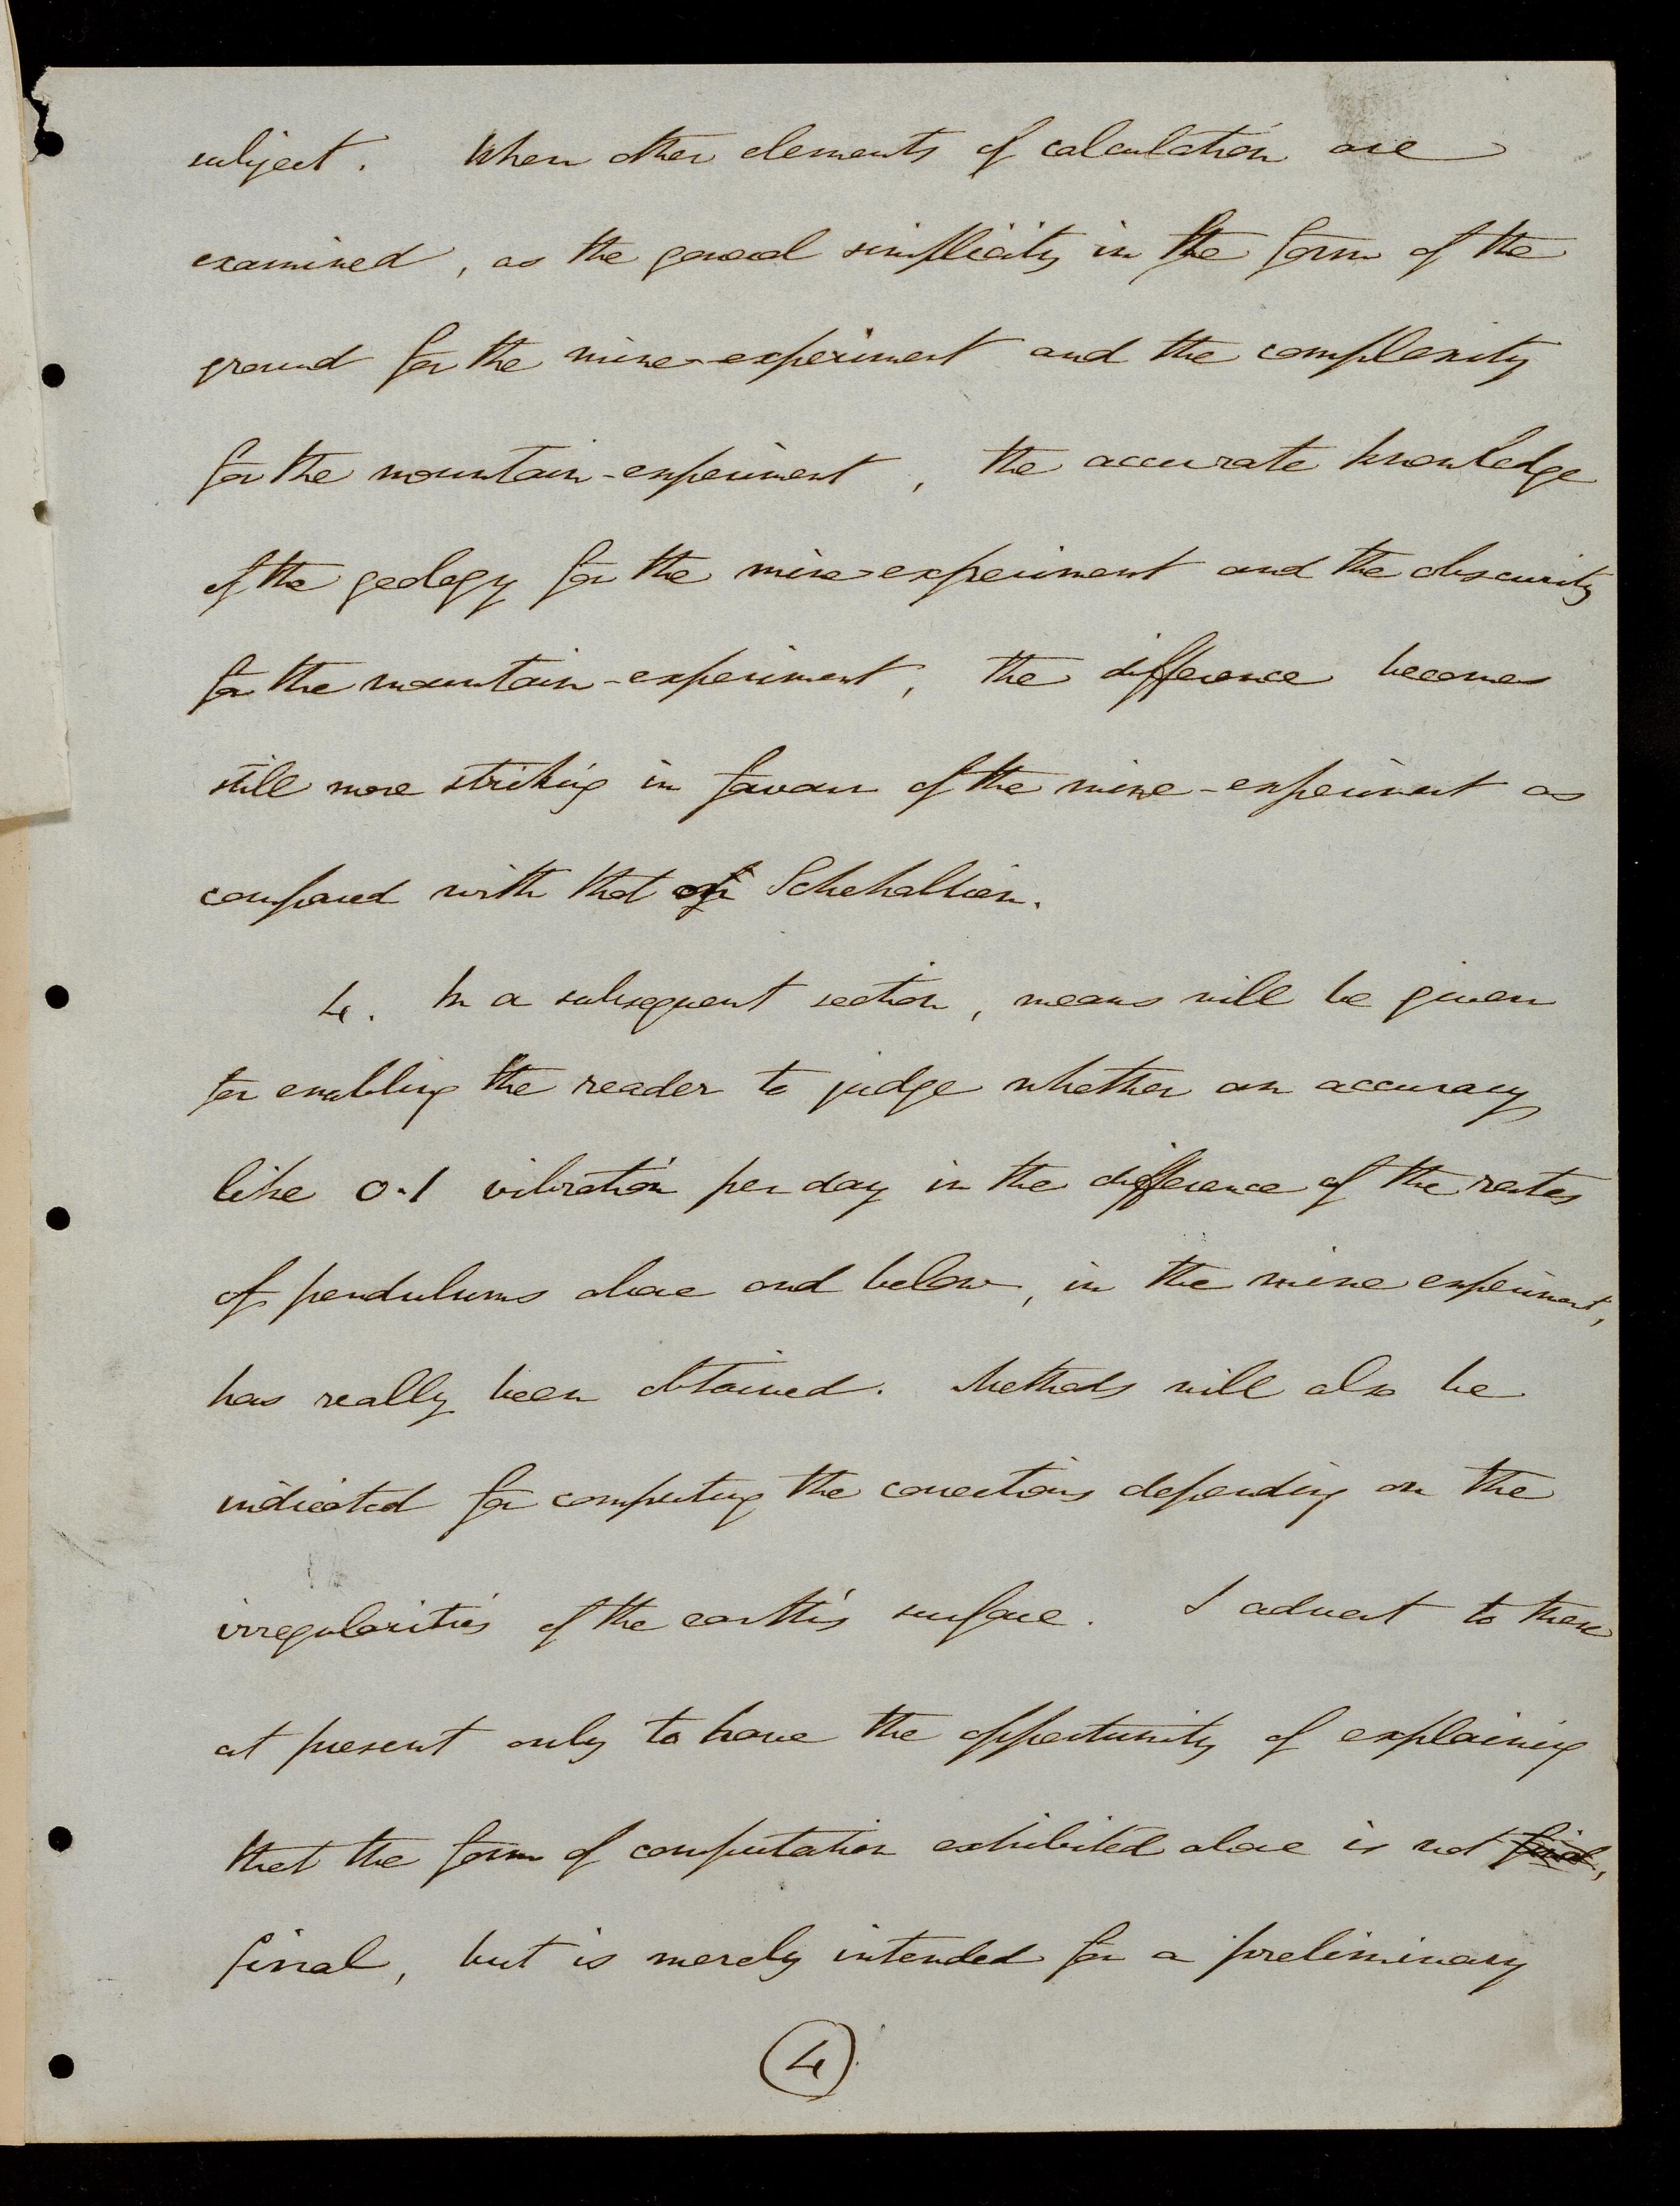 subject. When other elements of calculation are
examined, as the general simplicity in the form of the
ground for the mine-experiment and the complexity
for the mountain-experiment, the accurate knowledge
of the geology for the mine-experiment and the obscurity
for the mountain-experiment, the difference becomes
still more striking in favour of the mine-experiment as
compared with that of Schehallien.
4. In a subsequent section, means will be given
for enabling the reader to judge whether an accuracy
like 0.1 vibration per day in the difference of the rates
of pendulums above and below, in the mine experiment,
has really been obtained. Methods will also be
indicated for computing the corrections depending on the
irregularities of the earth's surface. I advert to these
at present only to have the opportunity of explaining
that the form of computation exhibited above is not final,
final, but is merely intended for a preliminary
4